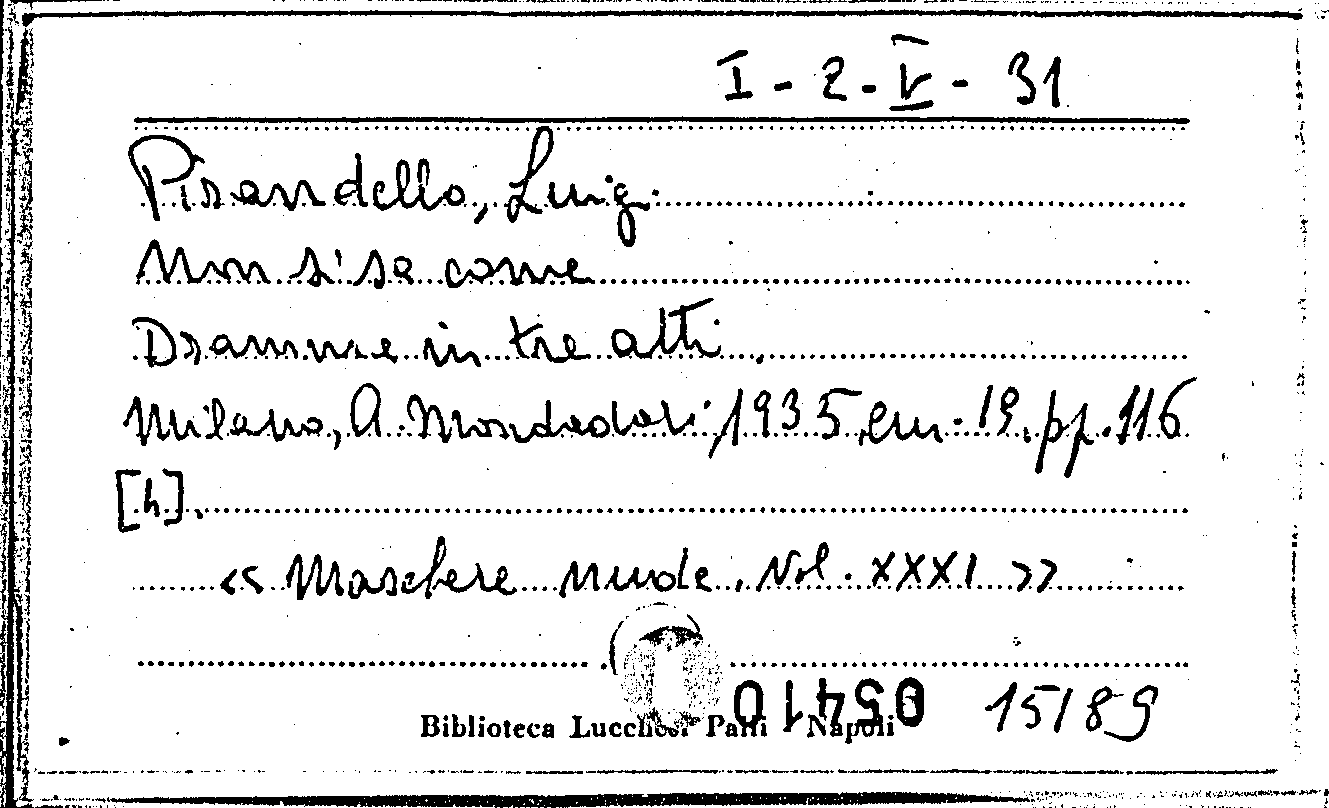 I - 2 - V - 31
Pirandello, Luigi
Non si sa come
Dramma in tre atti.
Milano, A. Mondadori, 1935, cm. 19, pp. 116
[4].
«Maschere nude, Vol. XXXI»
05410
15189
Biblioteca Lucchesi Palli Napoli